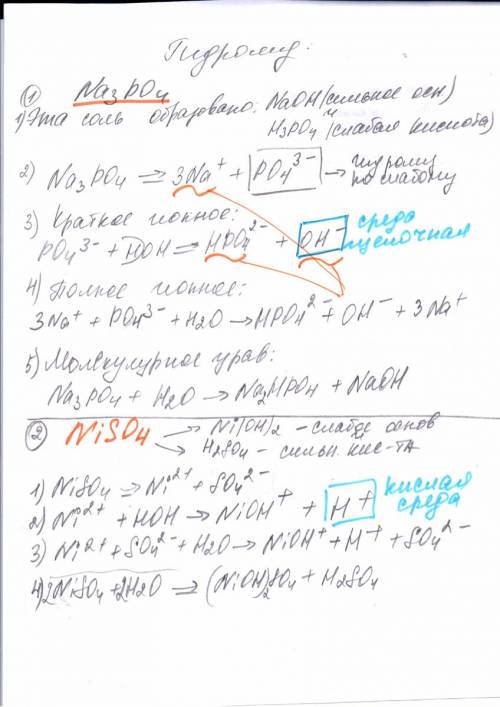 Гидролиз:
① Na3PO4
1) Эта соль образовано: NaOH (сильное осн)
и H3PO4 (слабая кислота)
2) Na3PO4 ⇌ 3Na⁺ + PO4³⁻ → гидролиз по слабому
3) Краткое ионное: среда
PO4³⁻ + HOH ⇌ HPO4²⁻ + OH⁻ щелочная
4) Полное ионное:
3Na⁺ + PO4³⁻ + H2O → HPO4²⁻ + OH⁻ + 3Na⁺
5) Молекулярное урав:
Na3PO4 + H2O → Na2HPO4 + NaOH
② NiSO4 → Ni(OH)2 – слабое основ
→ H2SO4 – сильн. кис-та
1) NiSO4 ⇌ Ni²⁺ + SO4²⁻
2) Ni²⁺ + HOH → NiOH⁺ + H⁺ кислая среда
3) Ni²⁺ + SO4²⁻ + H2O → NiOH⁺ + H⁺ + SO4²⁻
4) 2NiSO4 + 2H2O ⇌ (NiOH)2SO4 + H2SO4